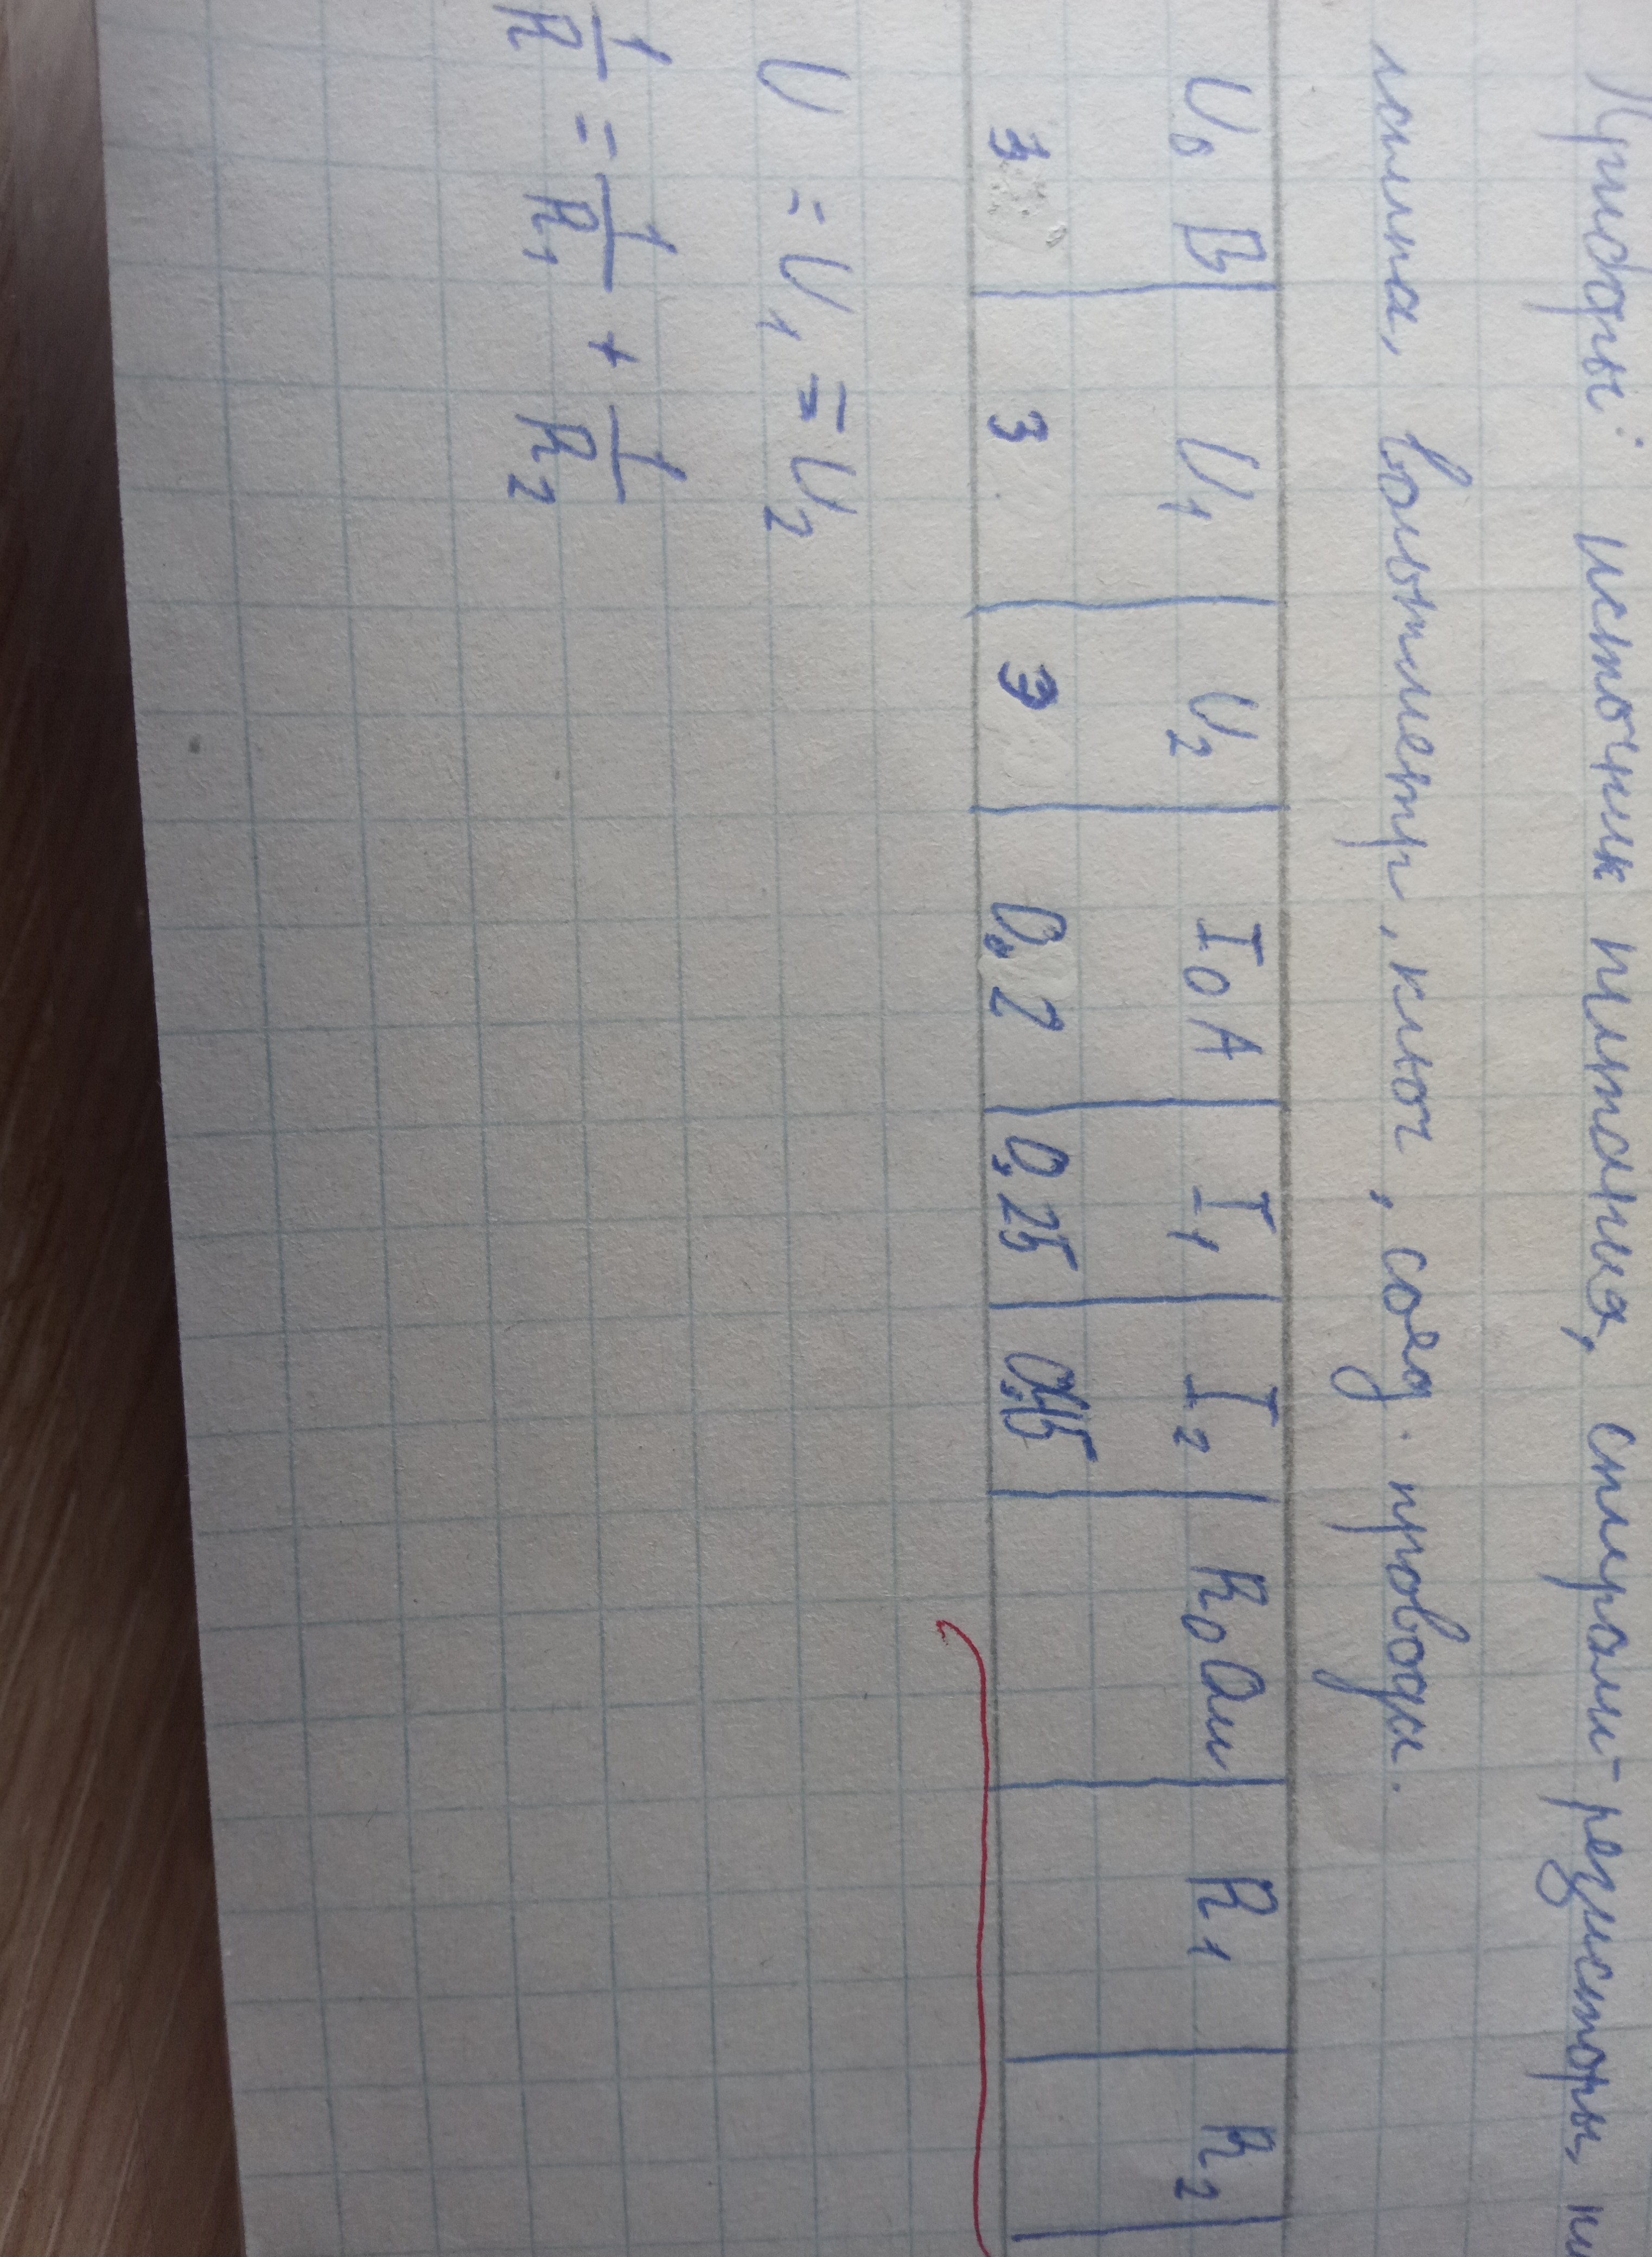 Приборы: источник питания, спирали-резисторы,
лампа, вольтметр, ключ, соед. провода.
U₀ В | U₁ | U₂ | I₀ А | I₁ | I₂ | R₀ Ом | R₁ | R₂
3 | 3 | 3 | 0,2 | 0,25 | | | |
U = U₁ = U₂
1/R = 1/R₁ + 1/R₂